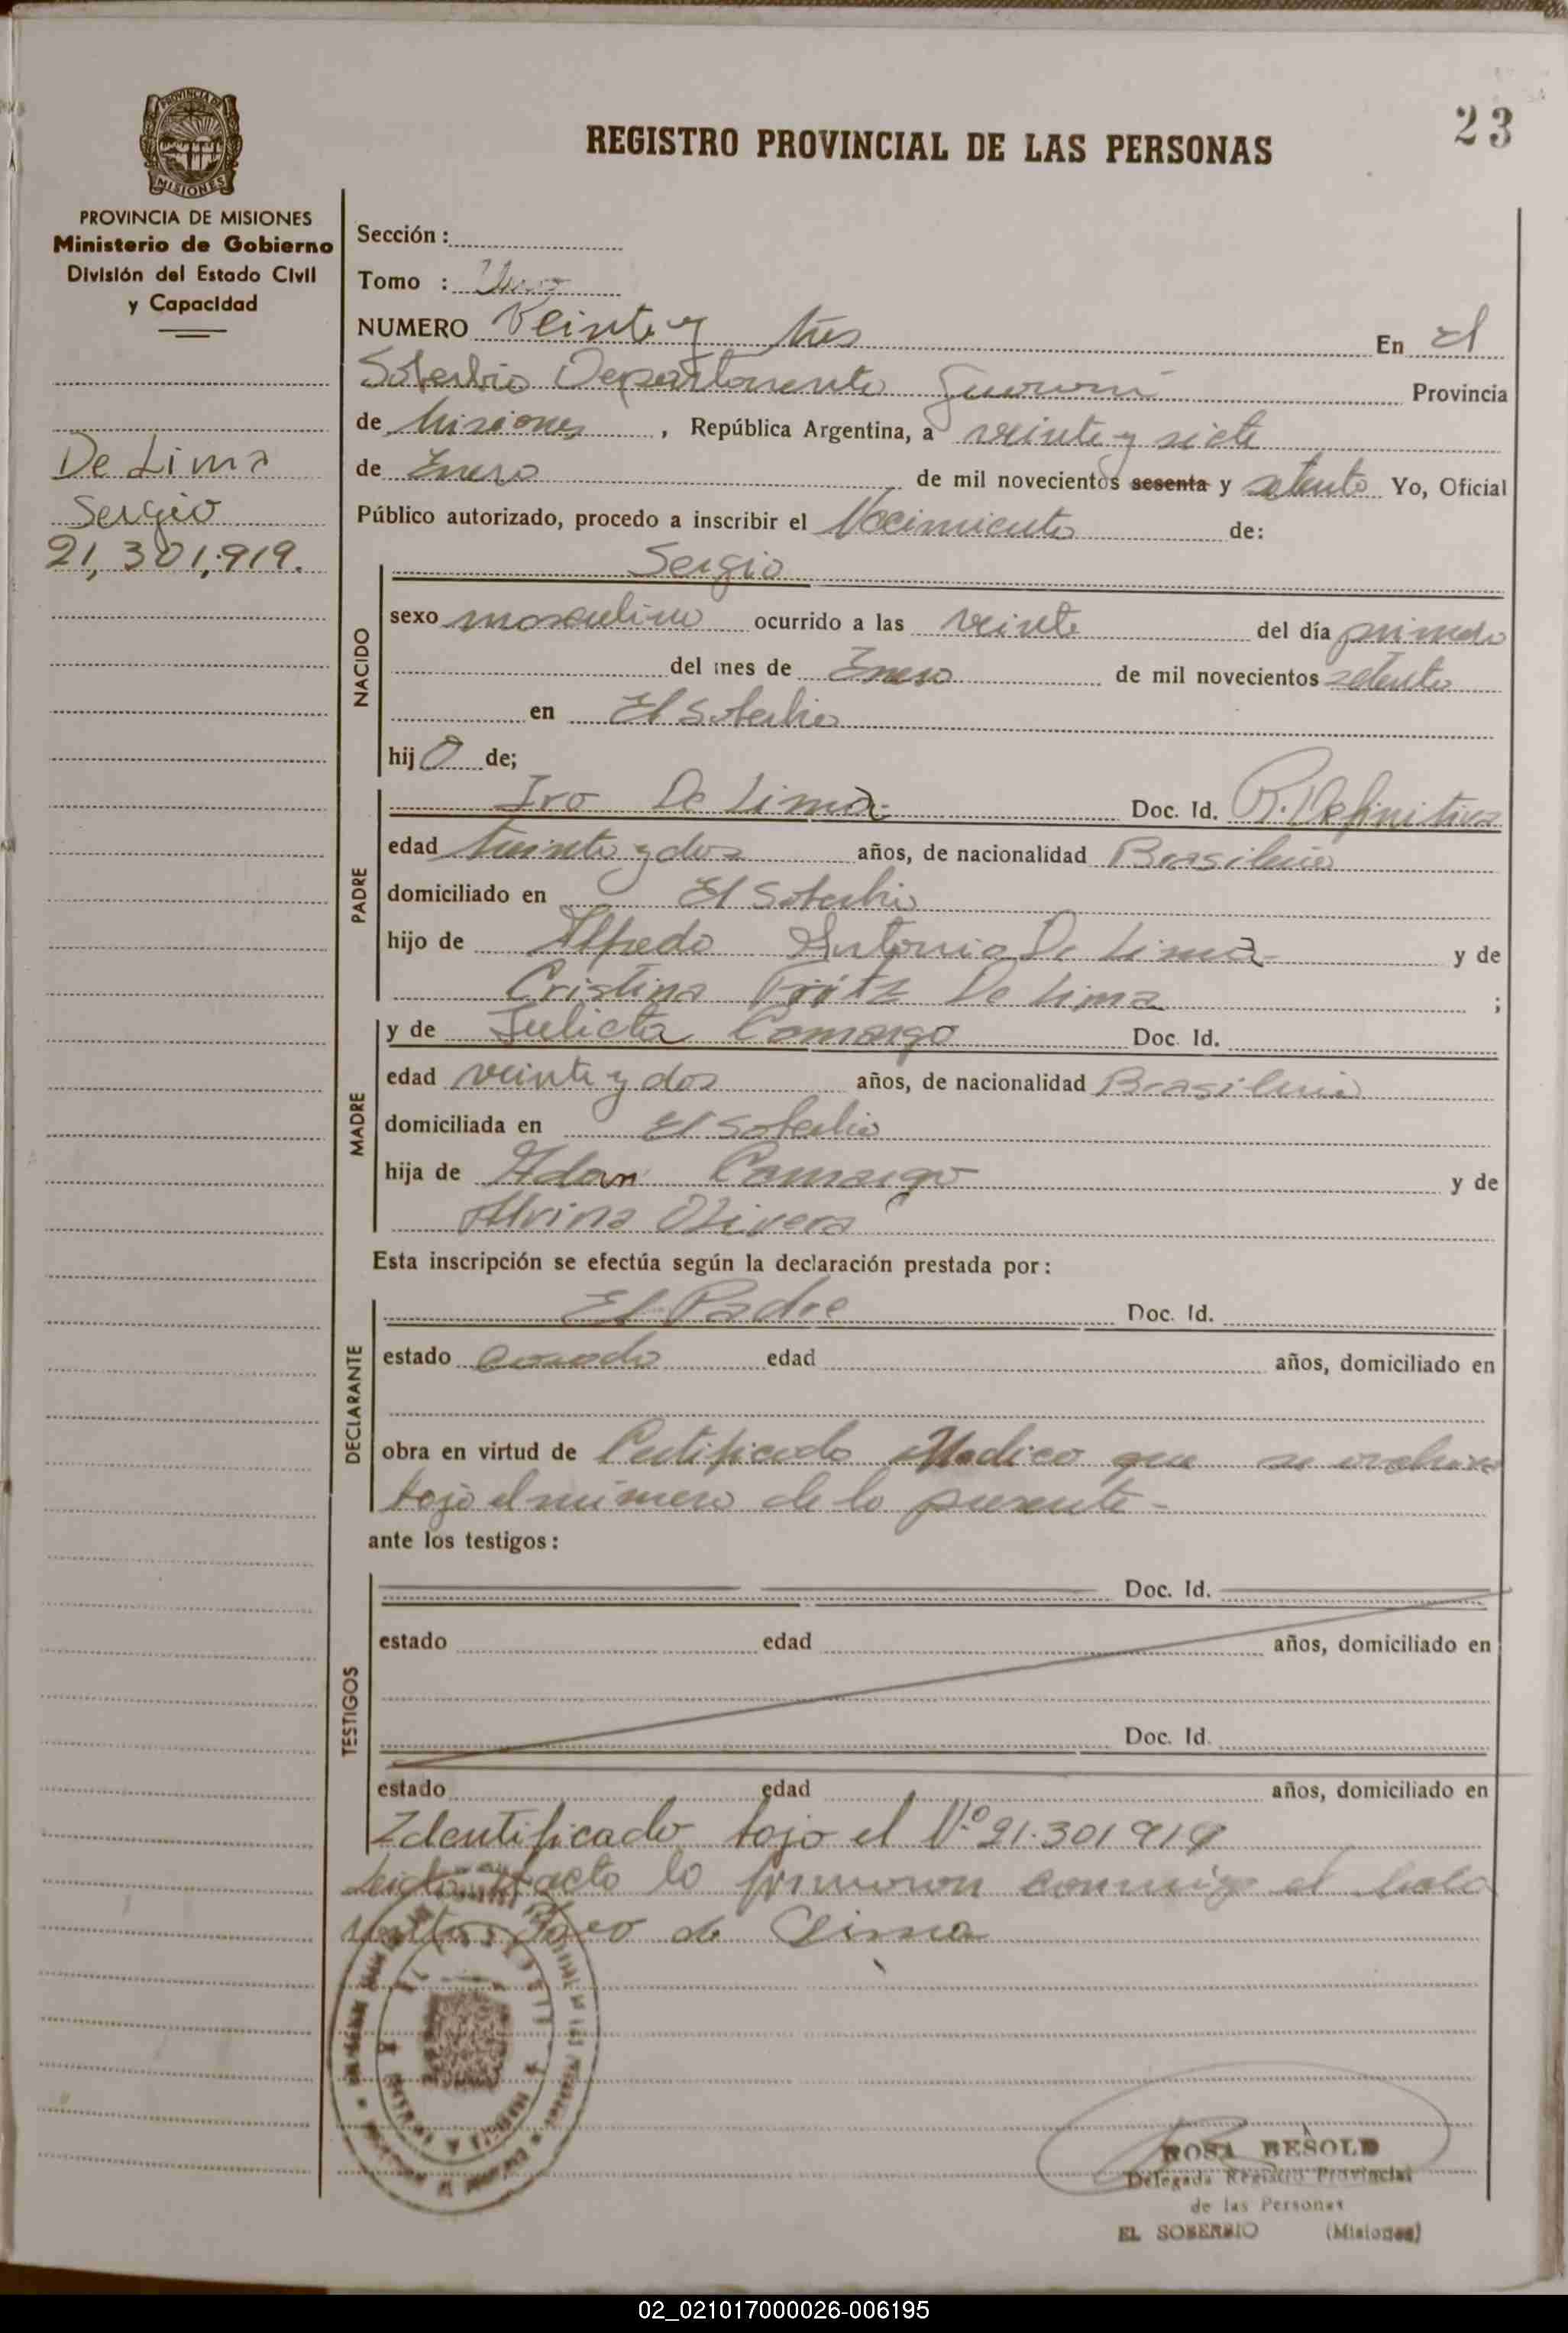 23
REGISTRO PROVINCIAL DE LAS PERSONAS
PROVINCIA DE
MISIONES
PROVINCIA DE MISIONES
Ministerio de Gobierno
División del Estado Civil
y Capacidad
De Lima
Sergio
21,301,919.
Sección:
Tomo : Uno
NUMERO Veinte y tres En El
Soberbio Departamento Guaraní Provincia
de Misiones, República Argentina, a veinte y siete
de Enero de mil novecientos sesenta y setenta Yo, Oficial
Público autorizado, procedo a inscribir el Nacimiento de:
NACIDO
Sergio
sexo masculino ocurrido a las veinte del día primero
del mes de Enero de mil novecientos setenta
en El Soberbio
hijo de;
PADRE
Iro De Lima Doc. Id. R. Definitiva
edad treinta y dos años, de nacionalidad Brasileña
domiciliado en El Soberbio
hijo de Alfredo Antonio De Lima y de
Cristina De Lima ;
MADRE
y de Julieta Camargo Doc. Id.
edad veinte y dos años, de nacionalidad Brasileña
domiciliada en El Soberbio
hija de Adan Camargo y de
Alvina Olivera
Esta inscripción se efectúa según la declaración prestada por:
DECLARANTE
El Padre Doc. Id.
estado casado edad años, domiciliado en
obra en virtud de Certificado Medico que se archiva
bajo el número de la presente-
ante los testigos:
TESTIGOS
Doc. Id.
estado edad años, domiciliado en
Doc. Id.
estado edad años, domiciliado en
Identificado bajo el Nº 21.301919
Leida acta la firmaron conmigo el
de Lima
ROSA BESOLD
Delegada Registro Provincial
de las Personas
EL SOBERBIO (Misiones)
02_021017000026-006195